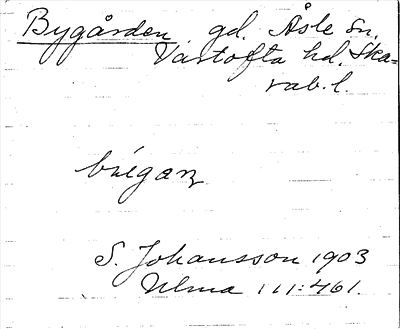 Bygården gd. Åsle sn,
Vartofta hd. Ska-
rab. l.
S. Johansson 1903
Ulma 111:461.